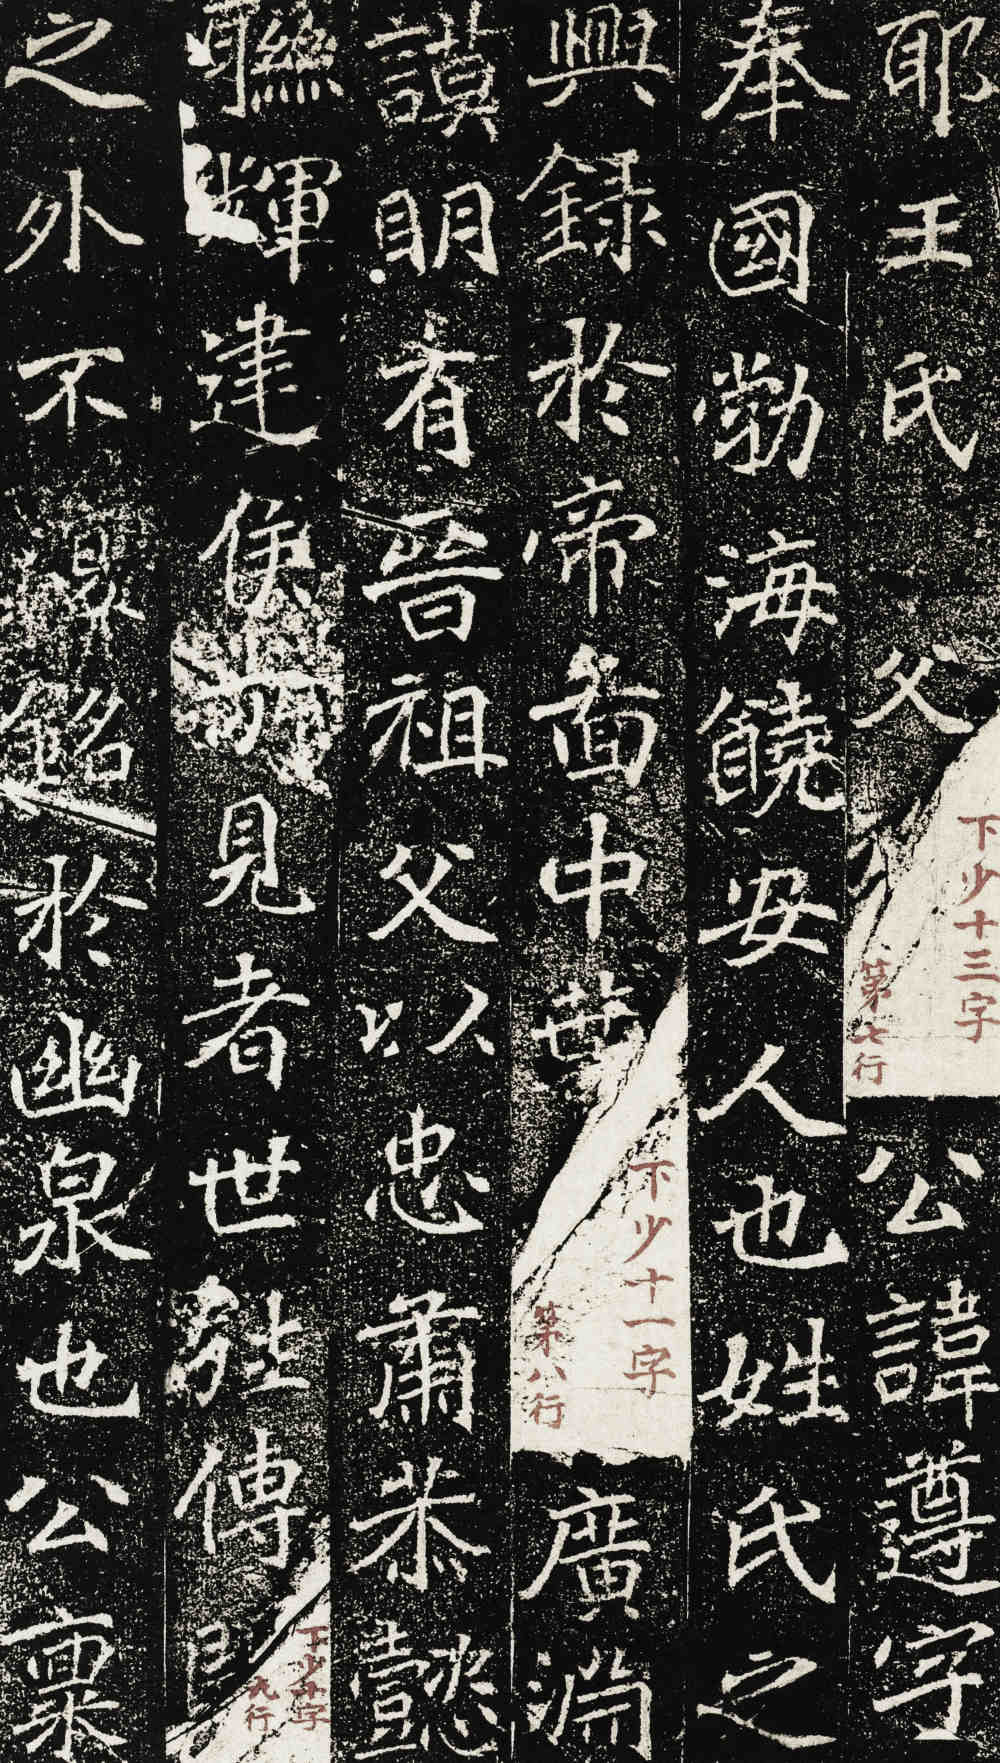 耶王氏父公諱遵字
下少十三字
第七行
奉國勃海饒安人也姓氏之
興錄於帝啚中葉廣淵
下少十一字
第八行
謨明有晉祖父以忠肅恭懿
聯輝建侯見者世傳
下少十字
九行
之外不銘於幽泉也公稟